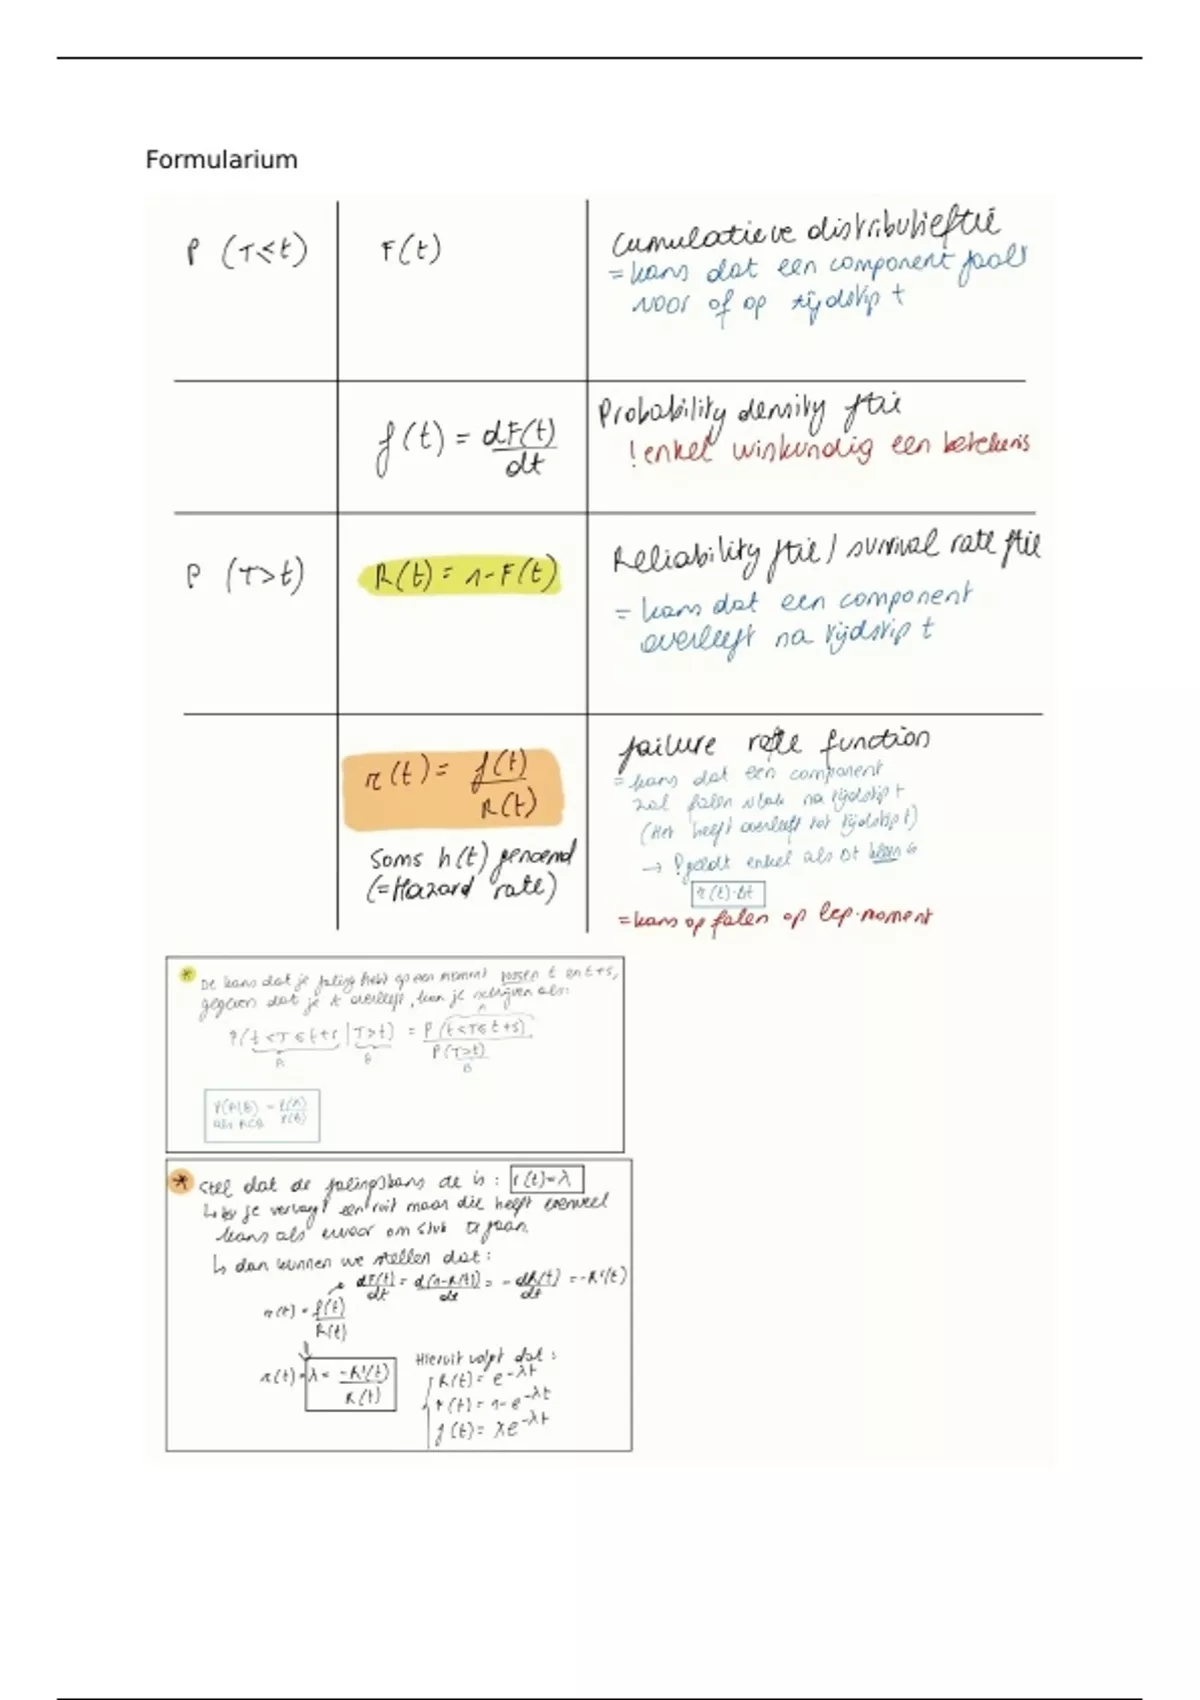 Formularium
P (T≤t)
F(t)
Cumulatieve distributieftie
= kans dat een component faalt
voor of op tijdstip t
f(t) = dF(t)/dt
Probability density ftie
! enkel wiskundig een betekenis
P (T>t)
R(t) = 1-F(t)
Reliability ftie / survival rate ftie
= kans dat een component
overleeft na tijdstip t
r(t) = f(t)/R(t)
Soms h(t) genoemd
(=Hazard rate)
failure rate function
= kans dat een component
zal falen vlak na tijdstip t
(Het heeft overleeft tot tijdstip t)
→ geldt enkel als Δt klein is
r(t)·Δt
= kans op falen op bep. moment
* De kans dat je faling hebt op een moment tussen t en t+s,
gegeven dat je t overleeft, kan je schrijven als:
P(t<T≤t+s | T>t) = P(t<T≤t+s)/P(T>t)
A B A B
P(A|B) = P(A)/P(B)
als A⊂B
* Stel dat de falingskans cte is : r(t)=λ
↳ je vervangt een ruit maar die heeft evenveel
kans als ervoor om stuk te gaan.
↳ dan kunnen we stellen dat :
dF(t)/dt = d(1-R(t))/dt = - dR(t)/dt = -R'(t)
r(t) = f(t)/R(t)
r(t) = λ = -R'(t)/R(t)
Hieruit volgt dat :
R(t) = e^-λt
F(t) = 1-e^-λt
f(t) = λe^-λt